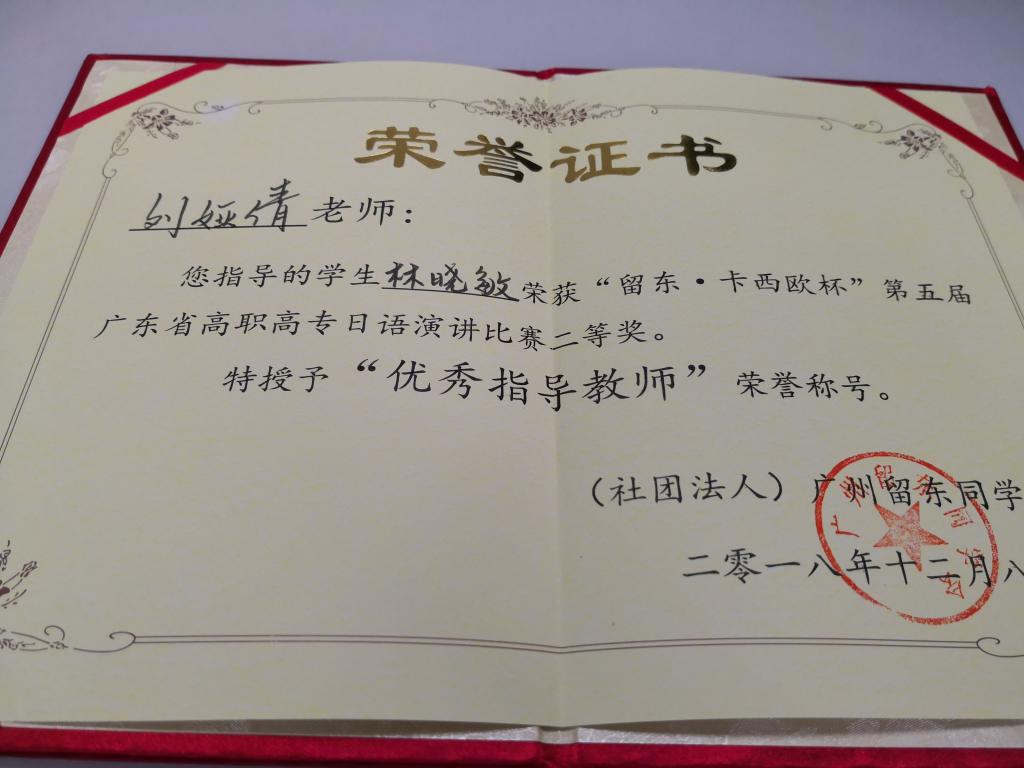 荣誉证书
刘娅倩老师：
您指导的学生林晓敏荣获“留东·卡西欧杯”第五届
广东省高职高专日语演讲比赛二等奖。
特授予“优秀指导教师”荣誉称号。
（社团法人）广州留东同学
二零一八年十二月八
广州留东同学会